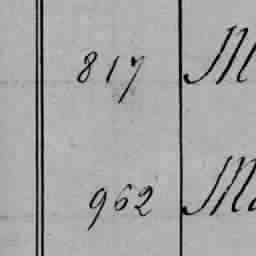 817 M
962 Ma